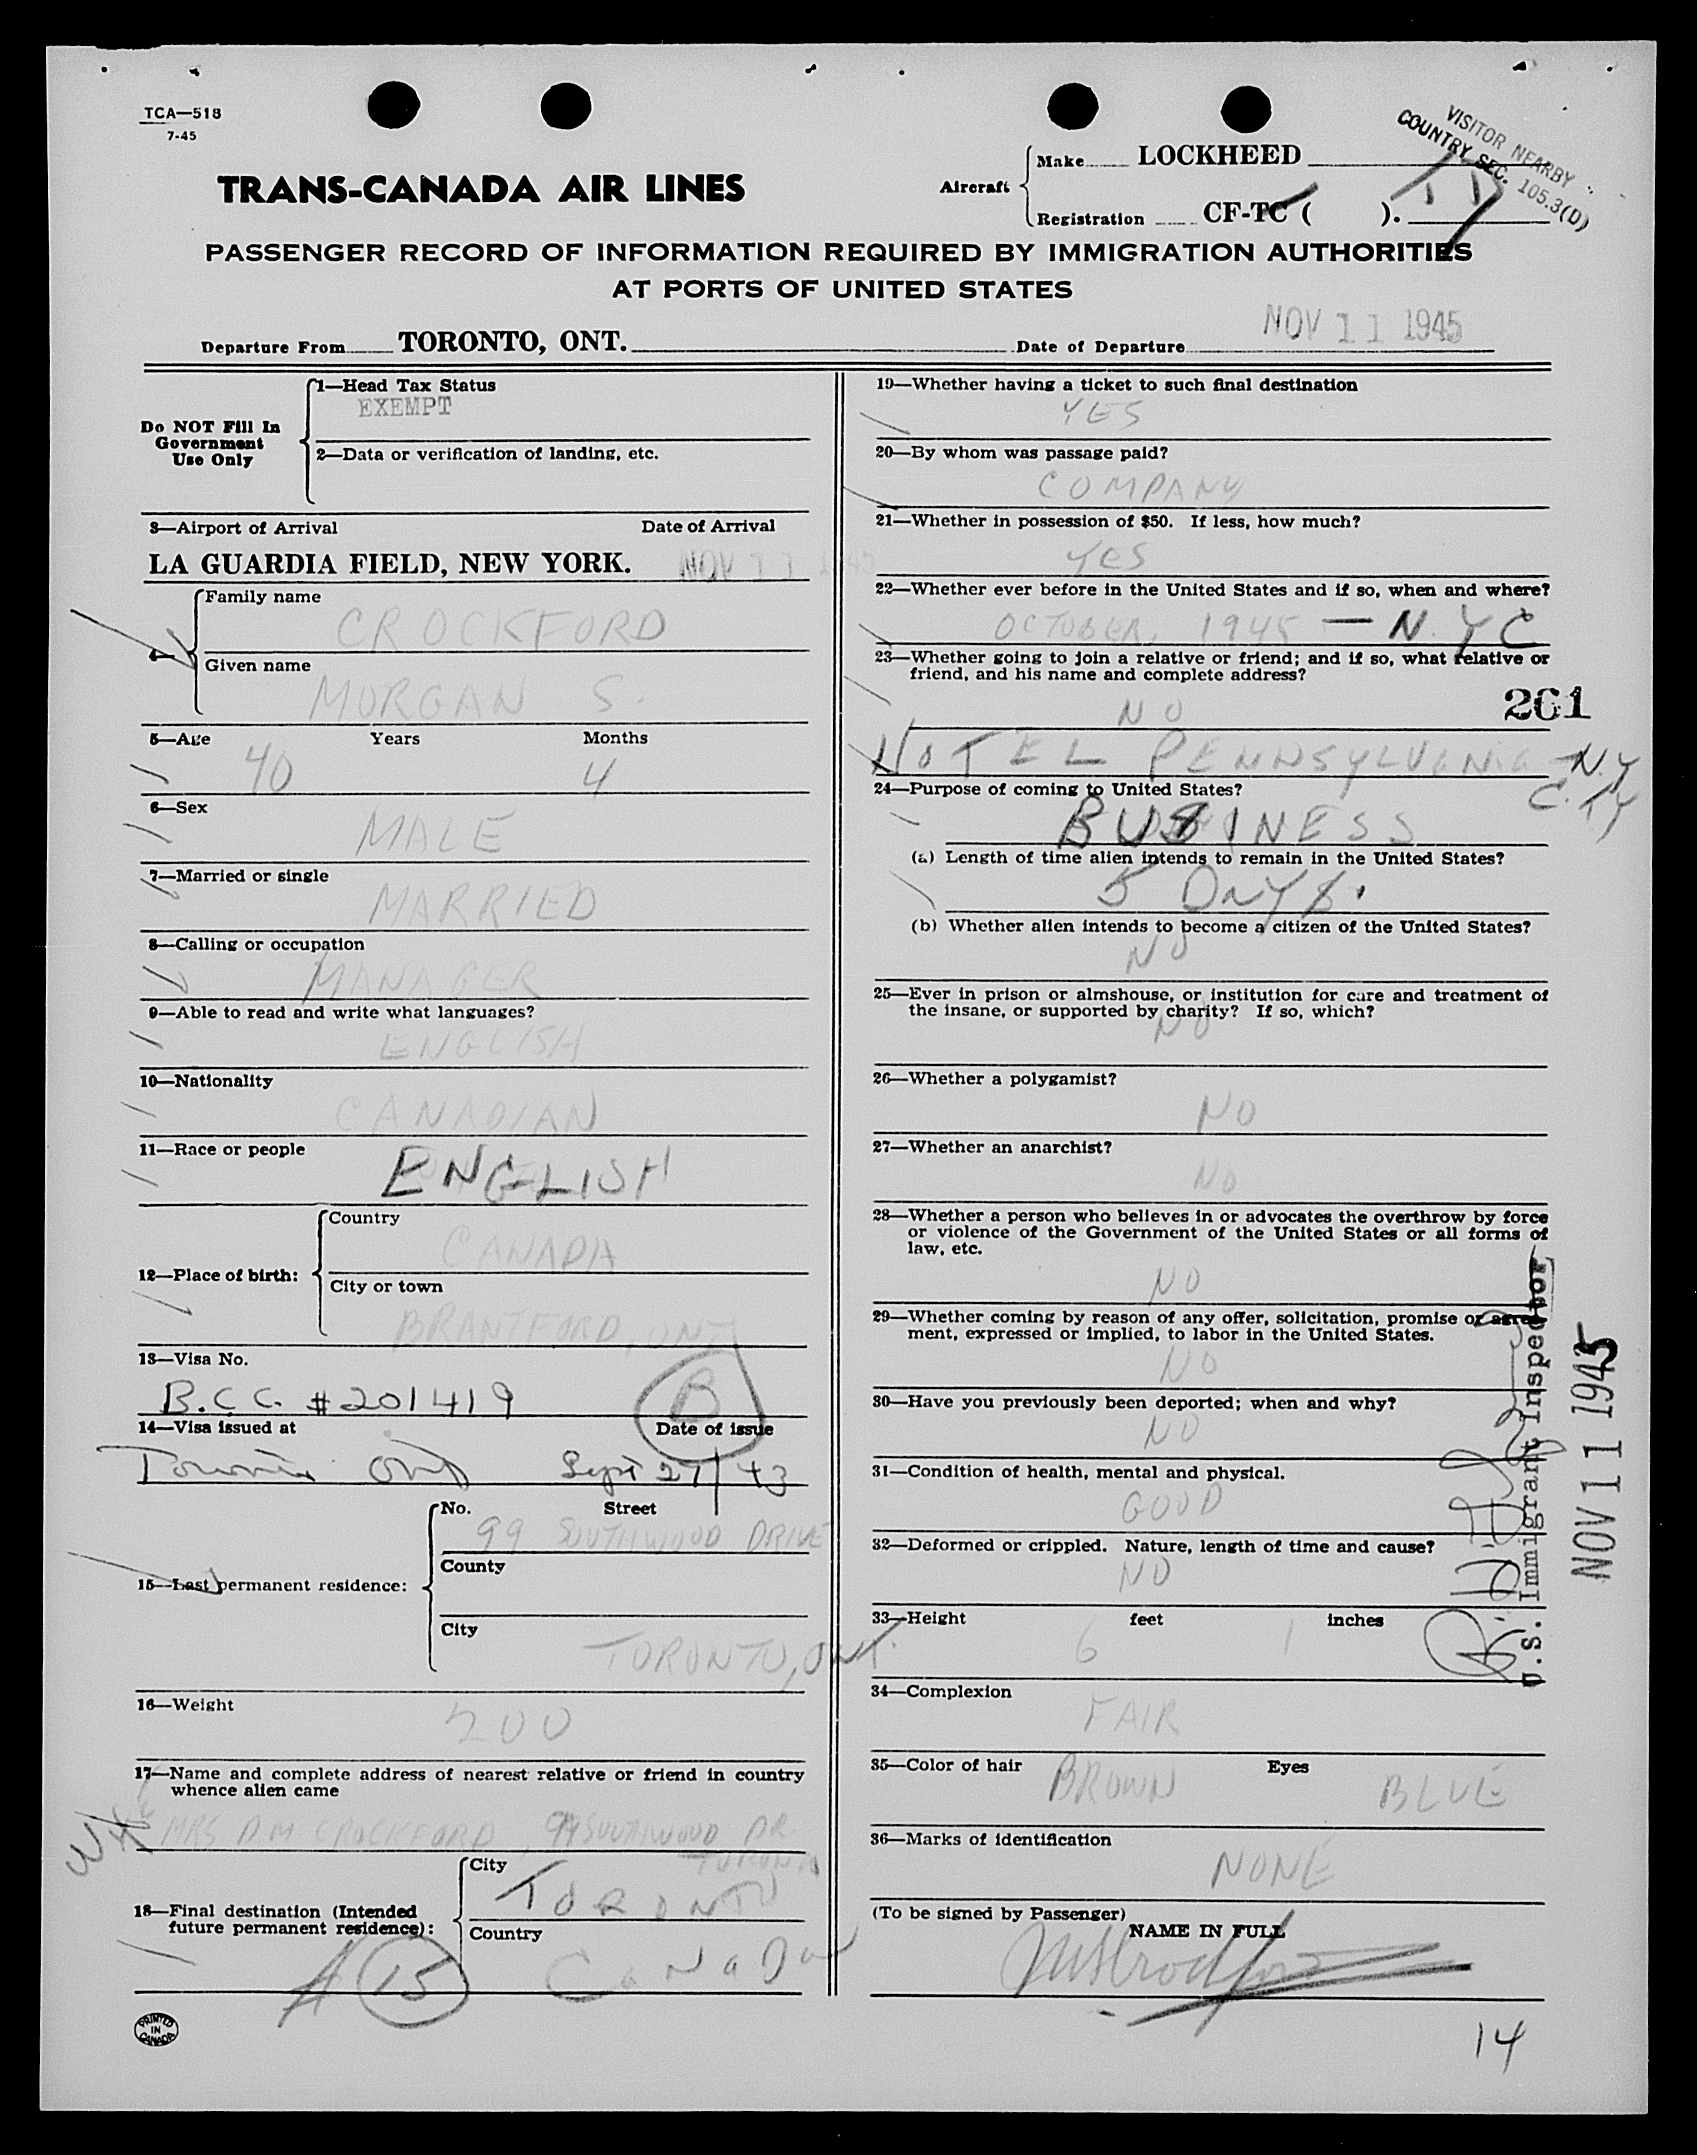 TCA—518
7-45
TRANS-CANADA AIR LINES
Aircraft
Make LOCKHEED
Registration CF-TC ( ).
VISITOR NEARBY
COUNTRY SEC. 105.3(D)
PASSENGER RECORD OF INFORMATION REQUIRED BY IMMIGRATION AUTHORITIES
AT PORTS OF UNITED STATES
Departure From TORONTO, ONT. Date of Departure NOV 11 1945
Do NOT Fill In
Government
Use Only
1—Head Tax Status
EXEMPT
2—Data or verification of landing, etc.
3—Airport of Arrival Date of Arrival
LA GUARDIA FIELD, NEW YORK. NOV 11 1945
4—
Family name
CROCKFORD
Given name
MORGAN S.
5—Age Years Months
40 4
6—Sex
MALE
7—Married or single
MARRIED
8—Calling or occupation
MANAGER
9—Able to read and write what languages?
ENGLISH
10—Nationality
CANADIAN
11—Race or people
ENGLISH
12—Place of birth:
Country
CANADA
City or town
BRANTFORD, ONT
13—Visa No.
B.C.C. #201419
B
14—Visa issued at Date of issue
Toronto Ont Sept 27/43
15—Last permanent residence:
No. Street
99 SOUTHWOOD DRIVE
County
City
TORONTO, ONT.
16—Weight
200
17—Name and complete address of nearest relative or friend in country
whence alien came
MRS D M CROCKFORD, 99 SOUTHWOOD DR.
TORONTO
18—Final destination (Intended
future permanent residence):
City
TORONTO
Country
CANADA
A 15
PRINTED
IN
CANADA
19—Whether having a ticket to such final destination
YES
20—By whom was passage paid?
COMPANY
21—Whether in possession of $50. If less, how much?
YES
22—Whether ever before in the United States and if so, when and where?
OCTOBER, 1945 — N.Y C
23—Whether going to join a relative or friend; and if so, what relative or
friend, and his name and complete address?
NO
261
HOTEL PENNSYLVANIA N.Y
CITY
24—Purpose of coming to United States?
BUSINESS
(a) Length of time alien intends to remain in the United States?
5 DAYS.
(b) Whether alien intends to become a citizen of the United States?
NO
25—Ever in prison or almshouse, or institution for care and treatment of
the insane, or supported by charity? If so, which?
NO
26—Whether a polygamist?
NO
27—Whether an anarchist?
NO
28—Whether a person who believes in or advocates the overthrow by force
or violence of the Government of the United States or all forms of
law, etc.
NO
29—Whether coming by reason of any offer, solicitation, promise or agree-
ment, expressed or implied, to labor in the United States.
NO
30—Have you previously been deported; when and why?
NO
31—Condition of health, mental and physical.
GOOD
32—Deformed or crippled. Nature, length of time and cause?
NO
33—Height feet inches
6 1
34—Complexion
FAIR
35—Color of hair BROWN Eyes BLUE
36—Marks of identification
NONE
(To be signed by Passenger)
NAME IN FULL
MSCrockford
14
U.S. Immigrant Inspector
NOV 11 1945